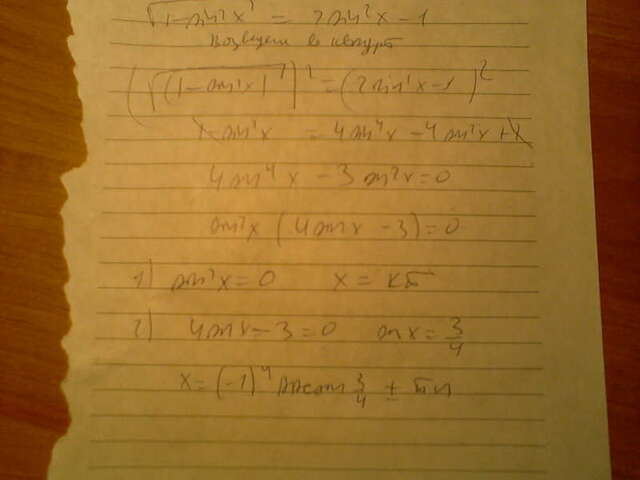 √(1-sin²x) = 2sin²x - 1
Возведем в квадрат
(√(1-sin²x))² = (2sin²x-1)²
1-sin²x = 4sin⁴x - 4sin²x + 1
4sin⁴x - 3sin²x = 0
sin²x (4sinx - 3) = 0
1) sin²x = 0 x = kπ
2) 4sinx - 3 = 0 sinx = 3/4
x = (-1)ⁿ arcsin 3/4 ± πn